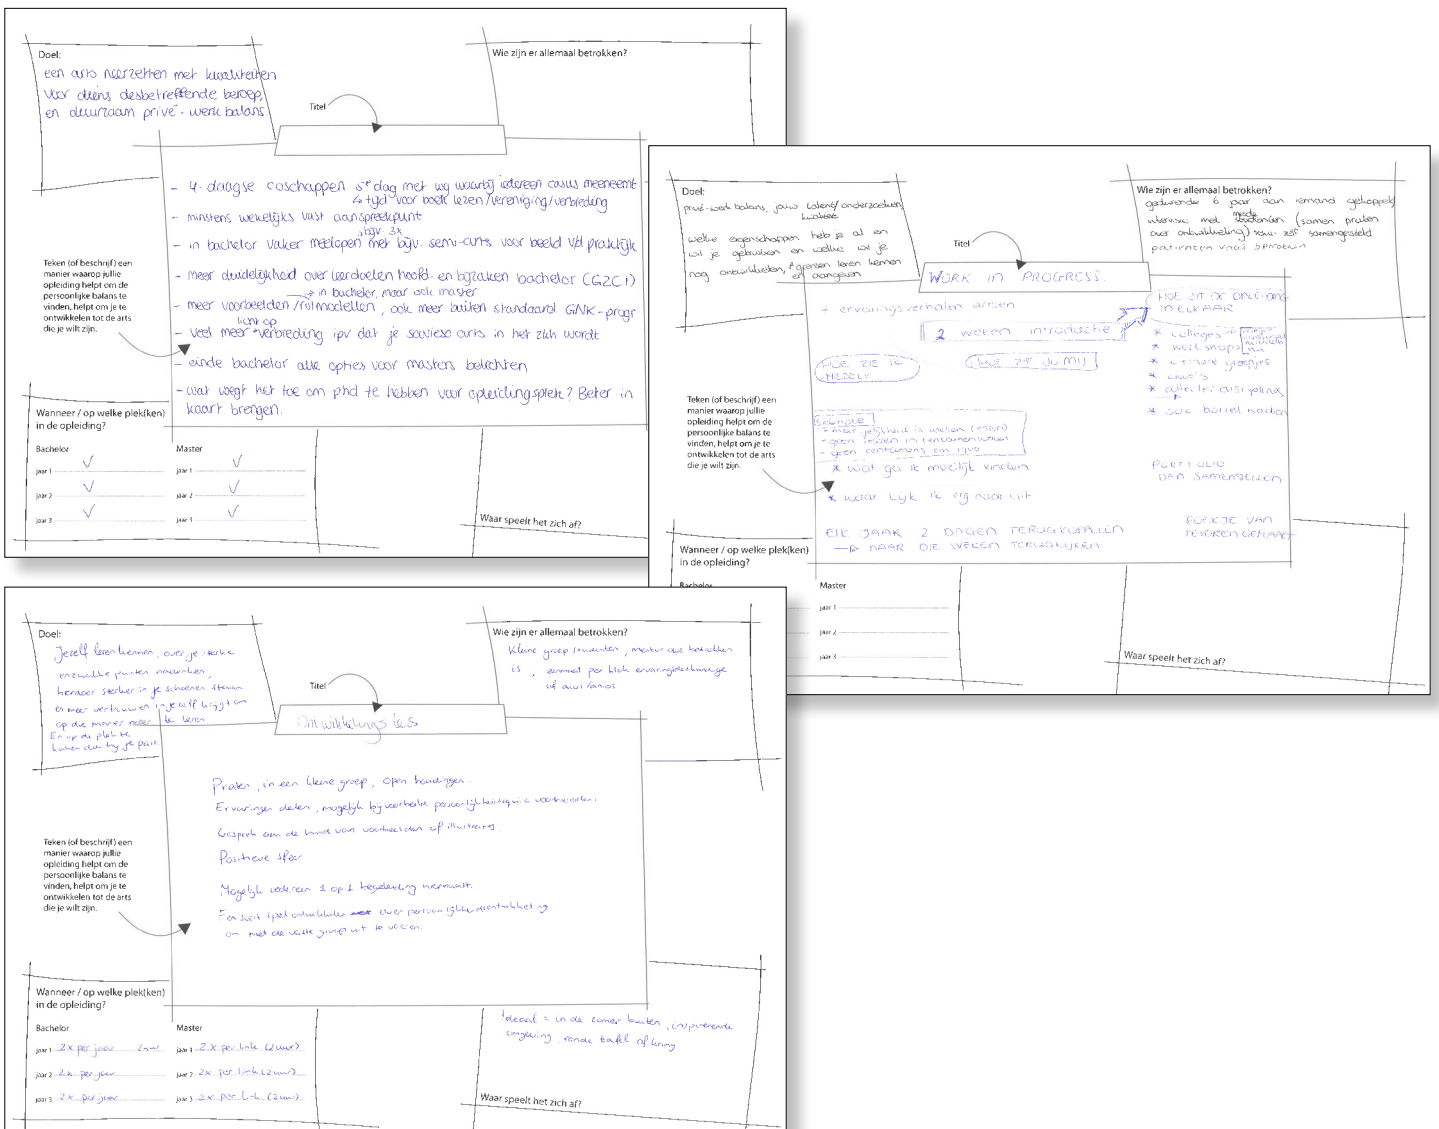 Doel:
een arts neerzetten met kwaliteiten
voor diens desbetreffende beroep,
en duurzaam privé - werk balans
Wie zijn er allemaal betrokken?
Titel
- 4-daagse coschappen 5e dag met wg waarbij iedereen casus meeneemt
↳ tijd voor boek lezen/vereniging/verbreding
- minstens wekelijks vast aanspreekpunt
bijv. 3x
- in bachelor vaker meelopen met bijv. semi-arts voor beeld v/d praktijk
- meer duidelijkheid over leerdoelen hoofd- en bijzaken bachelor (G2C1)
→ in bachelor, maar ook master
- meer voorbeelden/rolmodellen, ook meer buiten standaard GNK-progr
licht op
- veel meer verbreding ipv dat je sowieso arts in het zkh wordt
- einde bachelor alle opties voor masters belichten
- wat voegt het toe om phd te hebben voor opleidingsplek? Beter in
kaart brengen.
Teken (of beschrijf) een
manier waarop jullie
opleiding helpt om de
persoonlijke balans te
vinden, helpt om je te
ontwikkelen tot de arts
die je wilt zijn.
Wanneer / op welke plek(ken)
in de opleiding?
Bachelor Master
jaar 1 ✓ jaar 1 ✓
jaar 2 ✓ jaar 2 ✓
jaar 3 ✓ jaar 3 ✓
Waar speelt het zich af?
Doel:
privé-werk balans, jouw talent/ onderzoeken
kwaliteit
welke eigenschappen heb je al en
wil je gebruiken en welke wil je
nog ontwikkelen, + grenzen leren kennen
en aangeven
Wie zijn er allemaal betrokken?
gedurende 6 jaar aan iemand gekoppeld
intervisie met mede studenten (samen praten
over ontwikkeling) zelf samengesteld
patienten
Titel
WORK IN PROGRESS.
- ervaringsverhalen artsen
2 weken introductie
HOE ZIT DE OPLEIDING
IN ELKAAR
* colleges
* workshops
* kleine groepjes
* allerlei disciplines
* ook borrel houden
HOE ZIE IK
MEZELF
HOE ZIE JIJ MIJ
- geen lessen in tentamenweken
* wat ga ik moeilijk vinden
* waar kijk ik erg naar uit
PORTFOLIO
DAN SAMENSTELLEN
ELK JAAR 2 DAGEN TERUGKOPPELEN
→ NAAR DIE WEKEN TERUGKIJKEN
BOEKJE VAN
TEVOREN GEMAAKT
Teken (of beschrijf) een
manier waarop jullie
opleiding helpt om de
persoonlijke balans te
vinden, helpt om je te
ontwikkelen tot de arts
die je wilt zijn.
Wanneer / op welke plek(ken)
in de opleiding?
Bachelor Master
jaar 1
jaar 2
jaar 3
Waar speelt het zich af?
Doel:
Jezelf leren kennen, over je sterke
en zwakke punten nadenken,
hierdoor sterker in je schoenen staan
en meer vertrouwen in jezelf krijgt om
op die manier meer te leren
En op de plek te
komen die bij je past.
Wie zijn er allemaal betrokken?
Kleine groep studenten, mentor die betrokken
is, eenmaal per blok ervaringsdeskundige
of aios/anios
Titel
Ontwikkelings les
Praten, in een kleine groep, open houdingen.
Ervaringen delen, mogelijk bijvoorbeeld persoonlijkheidsquiz voorbereiden.
Gesprek aan de hand van voorbeelden of illustraties.
Positieve sfeer
Mogelijk iedereen 1 op 1 begeleiding hiernaast.
Een soort spel ontwikkelen over persoonlijkheidsontwikkeling
om met de vaste groep uit te voeren.
Teken (of beschrijf) een
manier waarop jullie
opleiding helpt om de
persoonlijke balans te
vinden, helpt om je te
ontwikkelen tot de arts
die je wilt zijn.
Wanneer / op welke plek(ken)
in de opleiding?
Bachelor Master
jaar 1 2x per jaar 2 uur jaar 1 2x per link (2 uur)
jaar 2 2x per jaar jaar 2 2x per link (2 uur)
jaar 3 2x per jaar jaar 3 2x per link (2 uur)
Ideaal = in de zomer buiten, inspirerende
omgeving, ronde tafel of kring
Waar speelt het zich af?